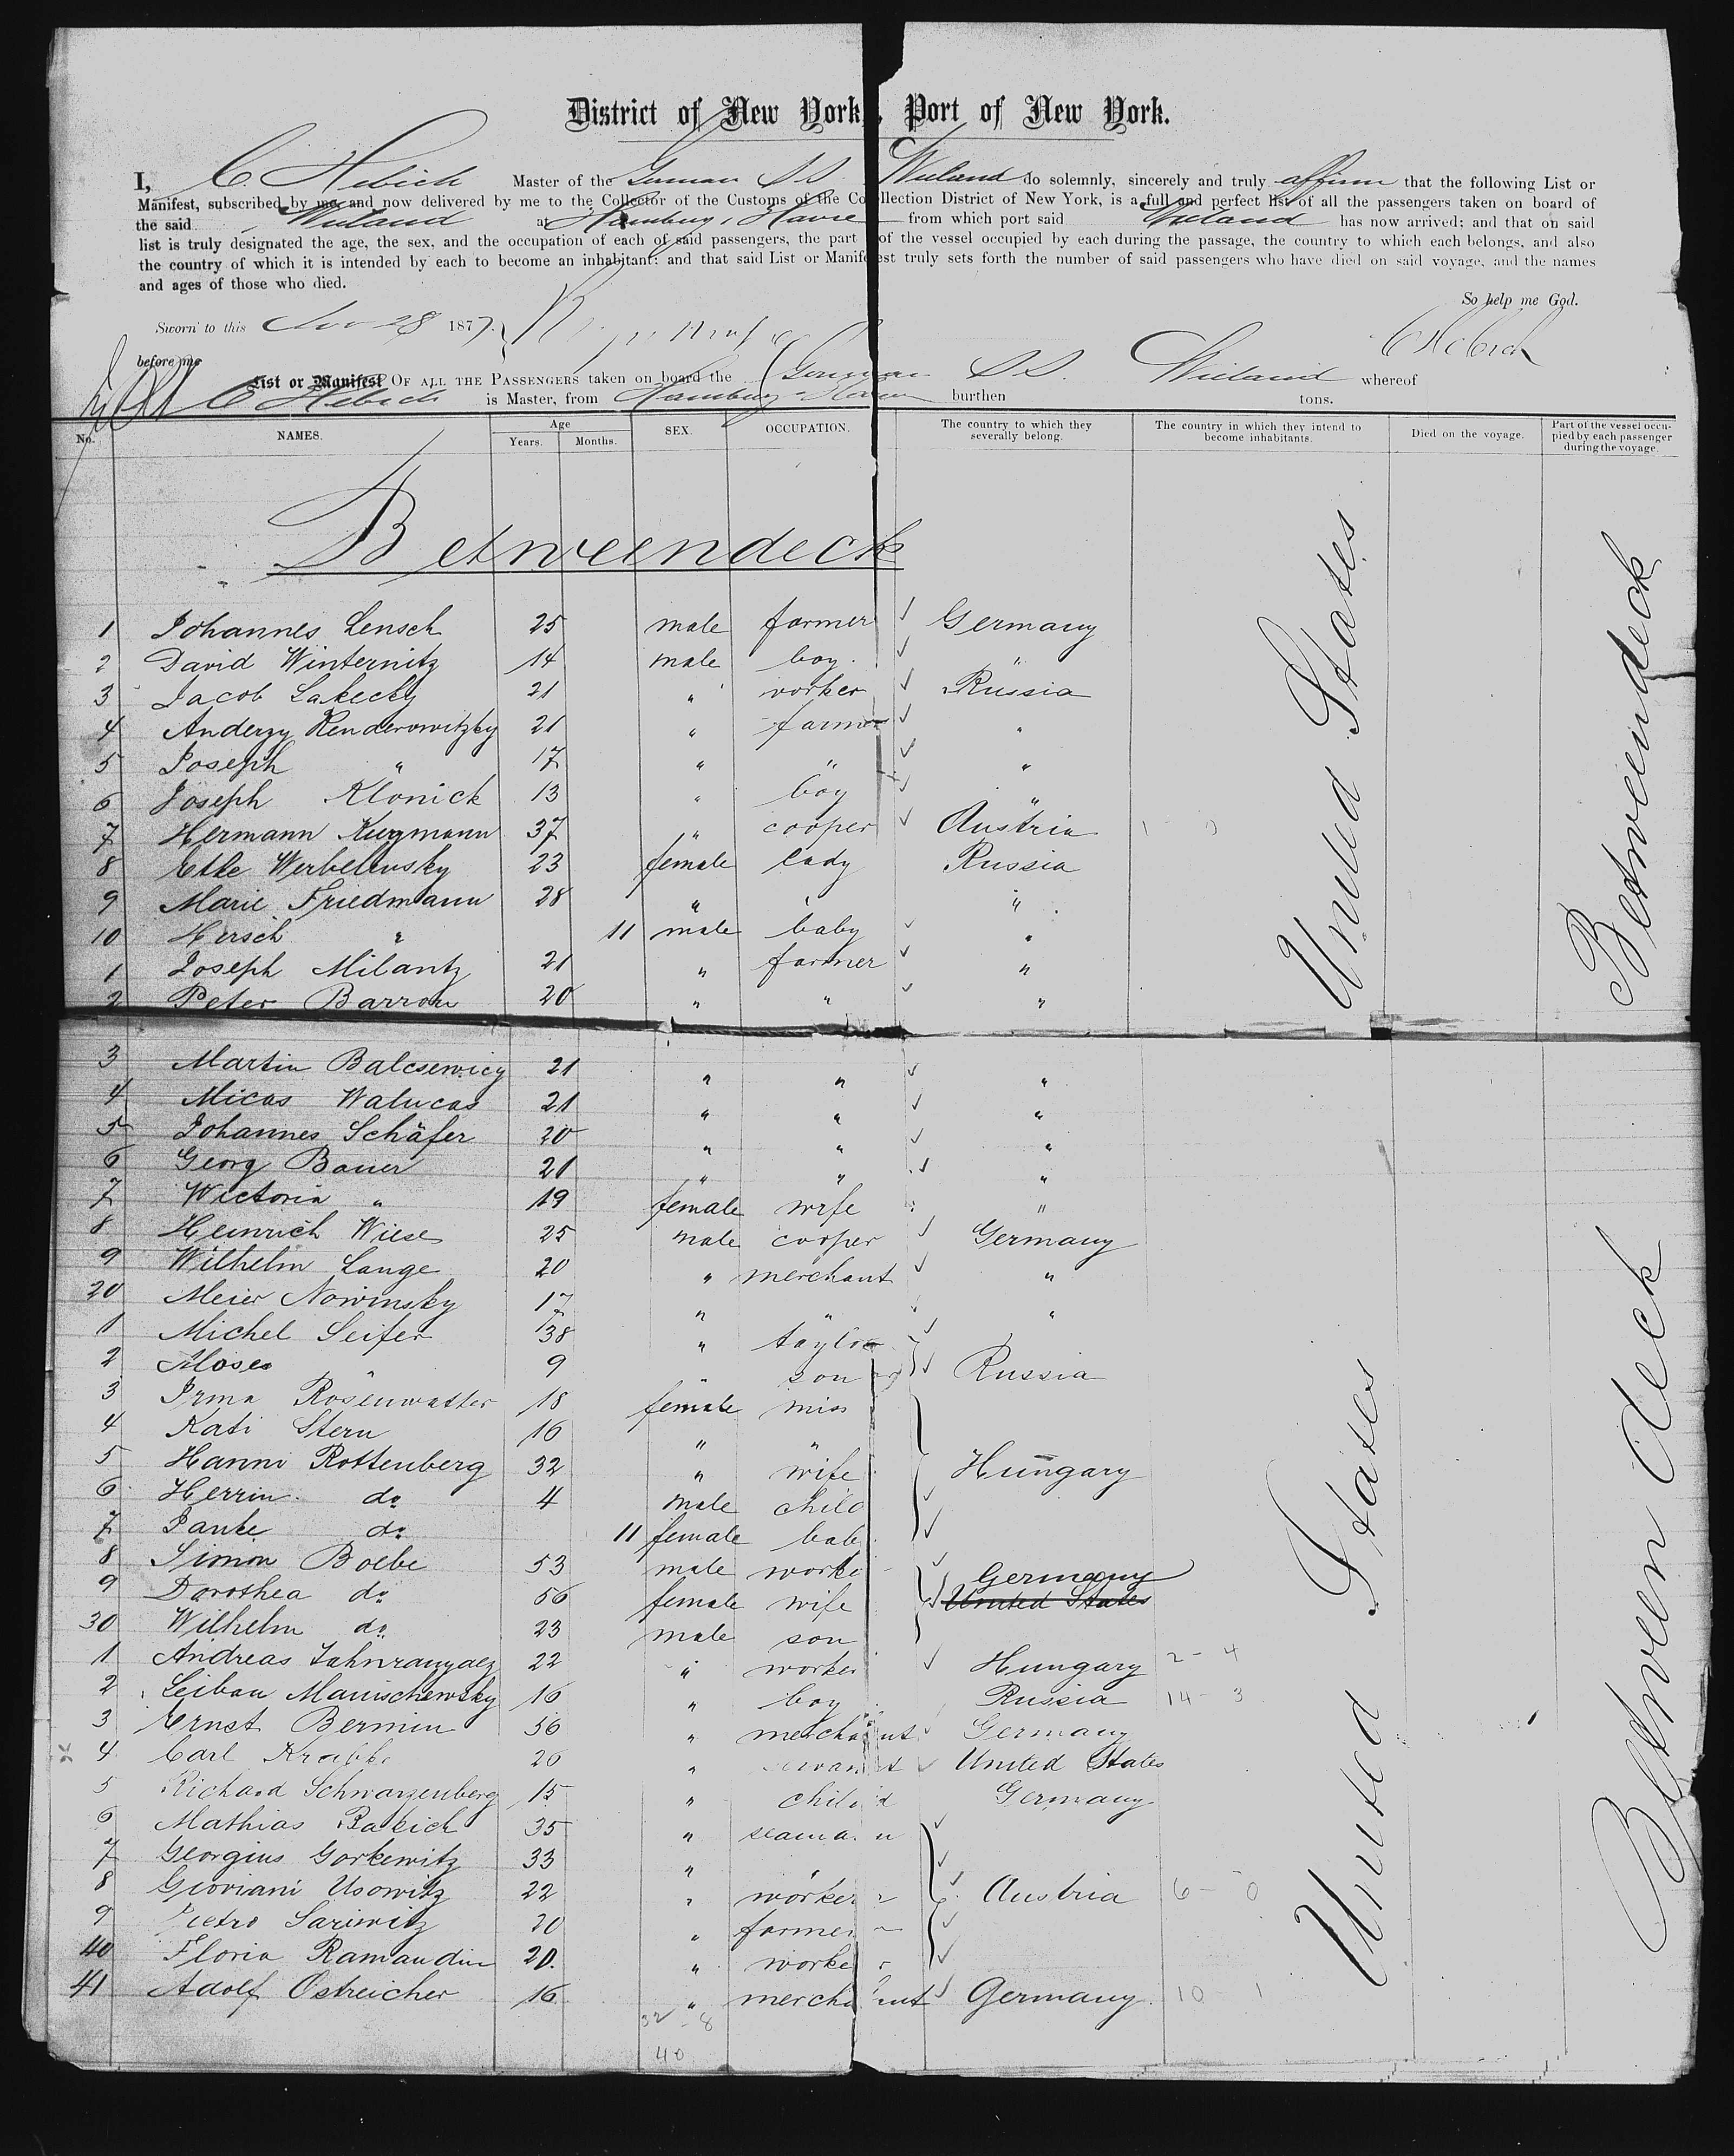 District of New York, Port of New York.
I, C. Hebich Master of the German SS Wieland do solemnly, sincerely and truly affirm that the following List or
Manifest, subscribed by me, and now delivered by me to the Collector of the Customs of the Collection District of New York, is a full and perfect list of all the passengers taken on board of
the said Wieland at Hamburg, Havre from which port said Wieland has now arrived; and that on said
list is truly designated the age, the sex, and the occupation of each of said passengers, the part of the vessel occupied by each during the passage, the country to which each belongs, and also
the country of which it is intended by each to become an inhabitant; and that said List or Manifest truly sets forth the number of said passengers who have died on said voyage, and the names
and ages of those who died.
So help me God.
Sworn to this Nov 28 1877.
C Hebich
before me
List or Manifest OF ALL THE PASSENGERS taken on board the German SS Wieland whereof
C Hebich is Master, from Hamburg Havre burthen tons.
No. NAMES. Age Years. Months. SEX. OCCUPATION. The country to which they severally belong. The country in which they intend to become inhabitants. Died on the voyage. Part of the vessel occupied by each passenger during the voyage.
Betweendeck
1 Johannes Lensch 25 male farmer Germany
2 David Winternitz 14 male boy "
3 Jacob Lakecky 21 " vorker Russia
4 Anderzy Renderowitzky 21 " farmer "
5 Joseph " 17 " " "
6 Joseph Klonick 13 " boy "
7 Hermann Kugmann 37 " cooper Austria
8 Etke Werbelinsky 23 female lady Russia
9 Marie Friedmann 28 " "
10 Hersch " 11 male baby "
1 Joseph Milantz 21 " farmer "
2 Peter Barron 20 " " "
3 Martin Balcsewicy 21 " " "
4 Micas Walucas 21 " " "
5 Johannes Schäfer 20 " " "
6 Georg Bauer 21 " " "
7 Wictoria " 19 female wife "
8 Heinrich Wiese 25 male cooper Germany
9 Wilhelm Lange 20 " merchant "
20 Meier Nowinsky 17 " " "
1 Michel Seifer 38 " taylor
2 Moses " 9 " son Russia
3 Irma Rosenwatter 18 female miss
4 Kati Stern 16 " "
5 Hanni Rottenberg 32 " wife Hungary
6 Herrin do 4 male child
7 Pauke do 11 female bab
8 Simon Boebe 53 male worke Germany
9 Dorothea do 56 female wife United States
30 Wilhelm do 23 male son
1 Andreas 22 " worker Hungary 2 - 4
2 Leiban Manischewsky 16 " boy Russia 14 - 3
3 Ernst Bermin 56 " merchant Germany
4 Carl Krabbe 26 " servant United States
5 Richard Schwarzenberg 15 " child Germany
6 Mathias Babich 35 " seaman
7 Georgius Gorkewitz 33 " "
8 Gioviani Usowitz 22 " worker Austria 6 - 0
9 Pietro Sariwitz 20 " farmer
40 Floria Ramaudin 20. " worker
41 Adolf Ostreicher 16 " merchant Germany. 10 1
32 - 8
40
United States
Betweendeck
United States
Between deck